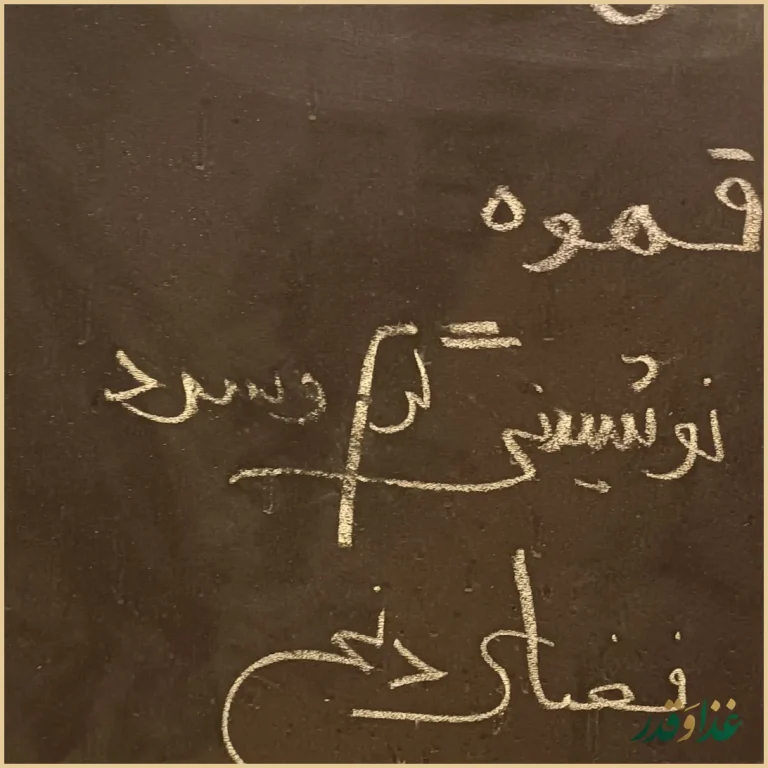 قهوه
نوشیدنی گرم و سرد
فضای دنج
غذا و قدر